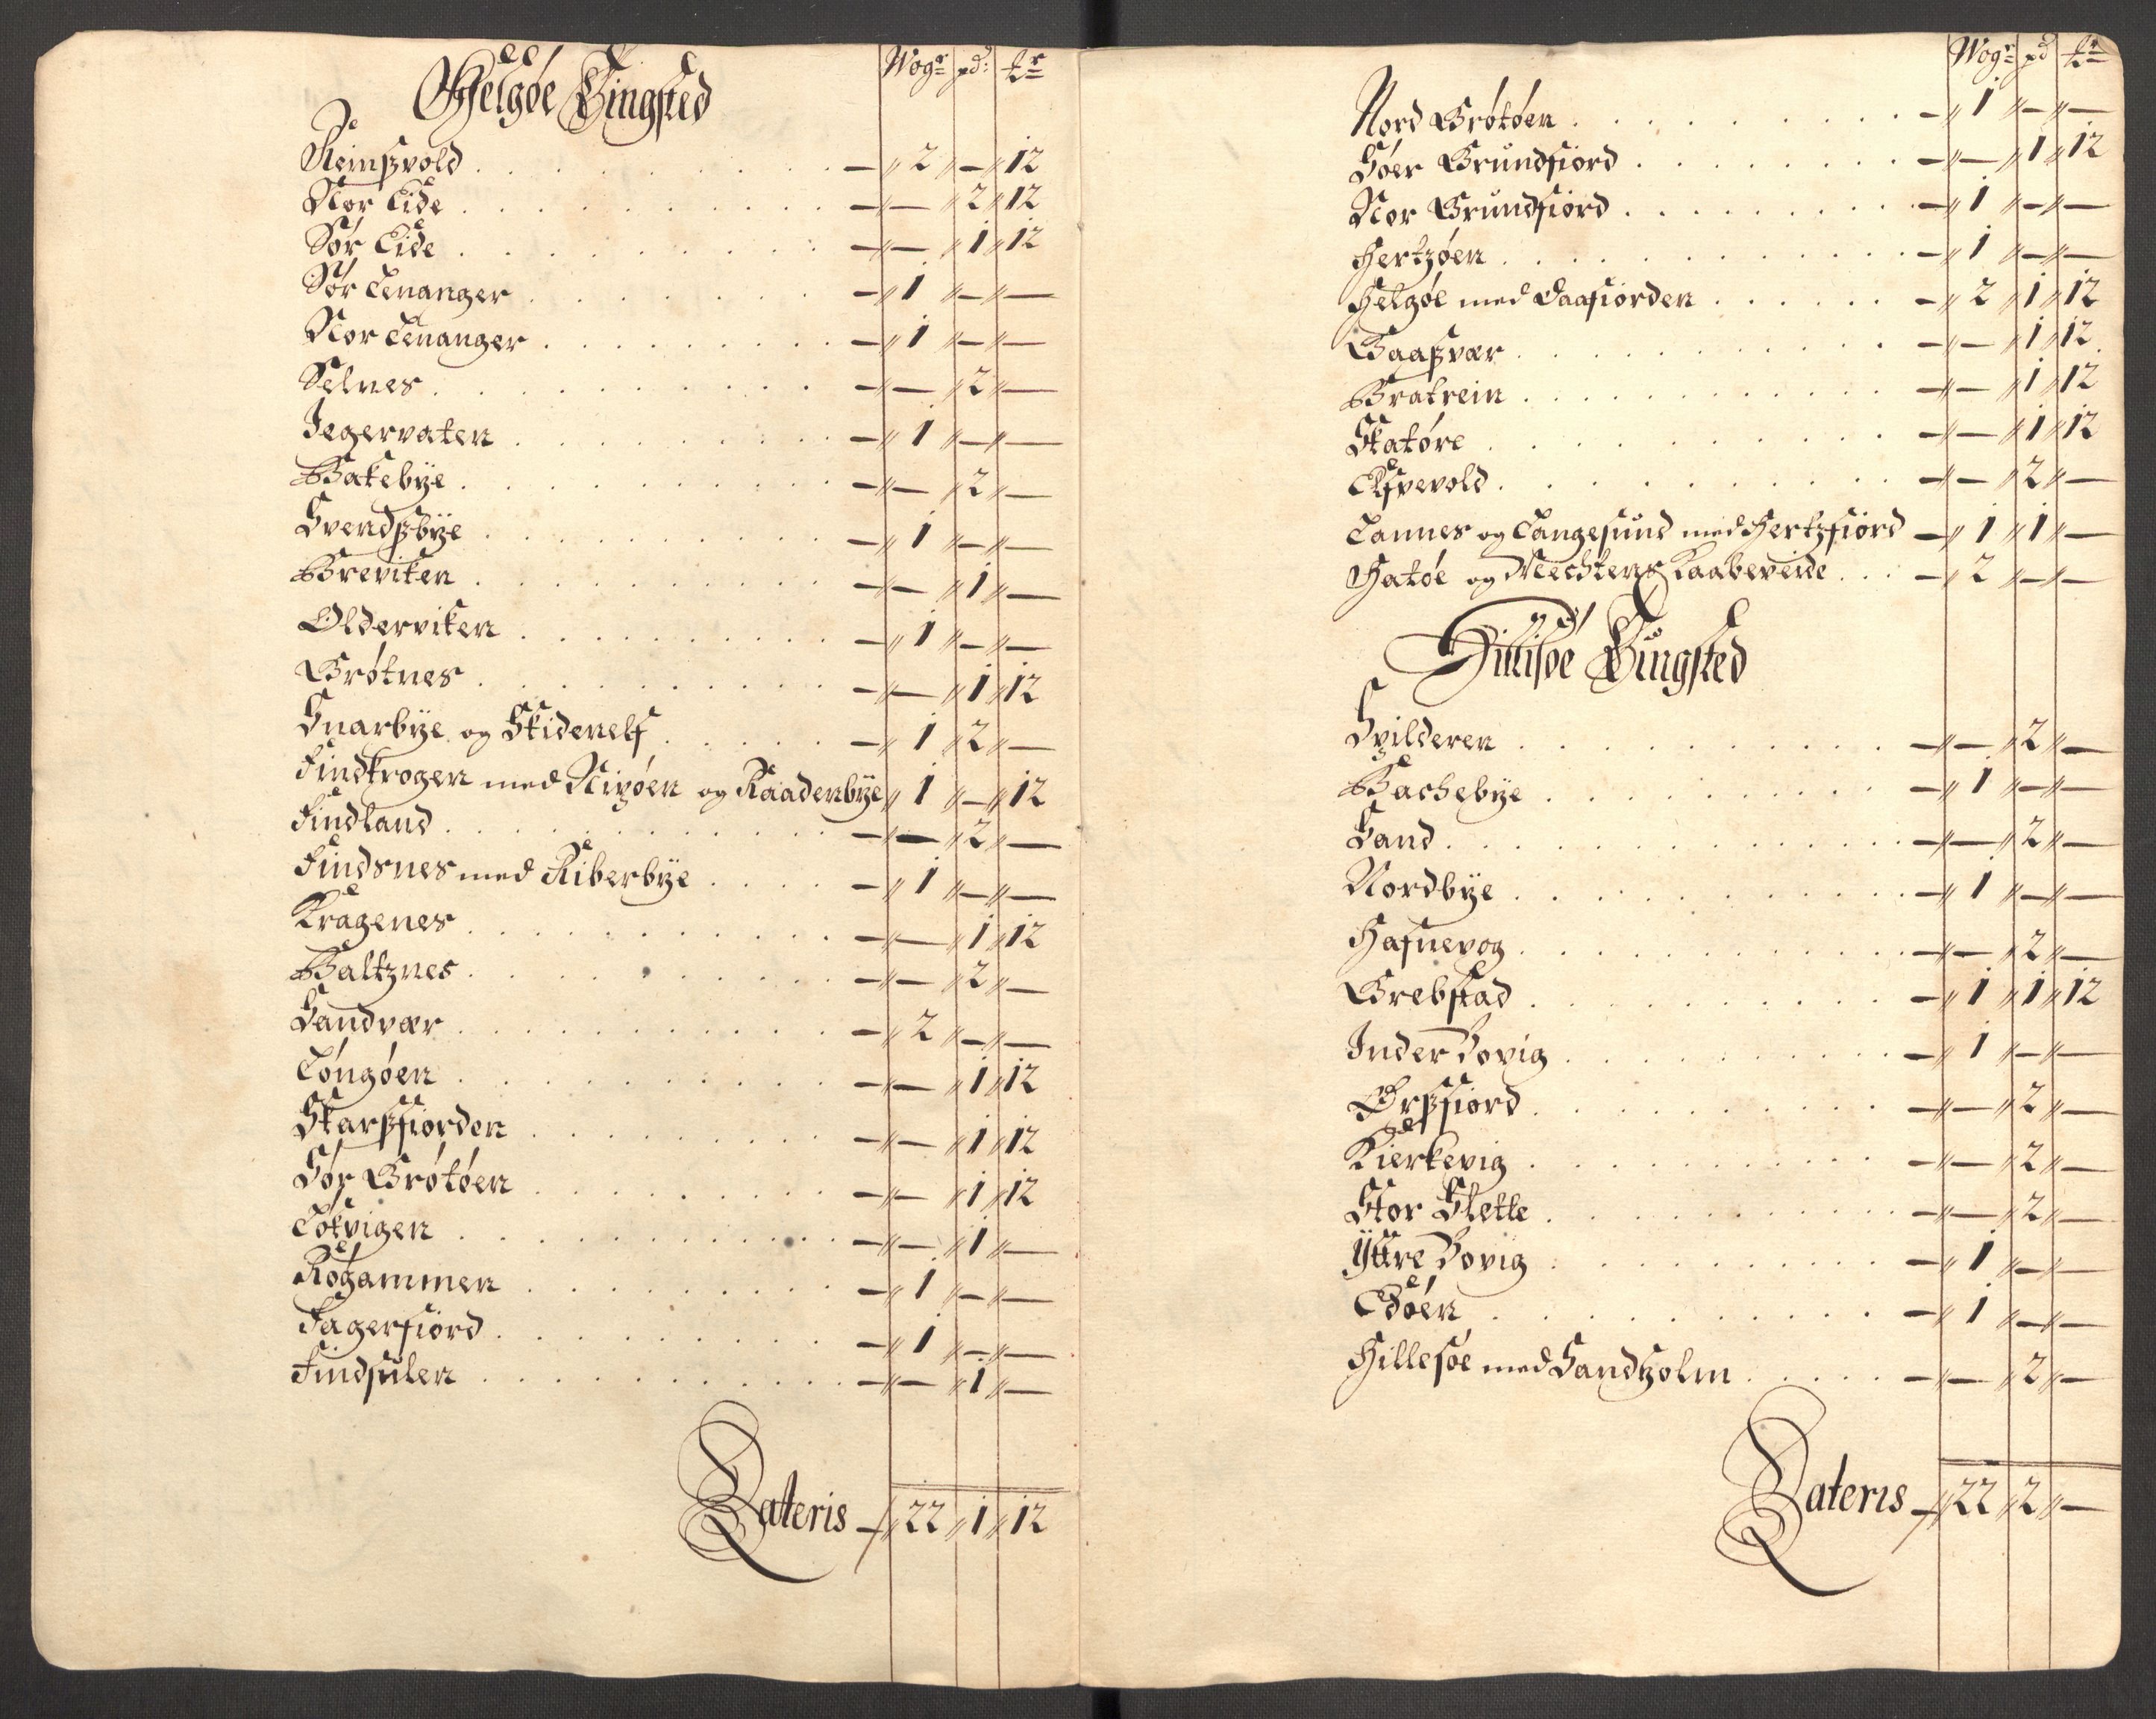 Helgøe Tingsted
Wogr pd: ℔r
Reinßvold . . . . — 2 — 12
Nor Eide . . . . — — 2 12
Sør Eide . . . . — — 1 12
Sør Lenanger . . . . — 1 — —
Nor Lenanger . . . . — 1 — —
Selnes . . . . — — 2 —
Jegervaten . . . . — 1 — —
Bakebÿe . . . . — — 2 —
Svendßbÿe . . . . — 1 — —
Breviken . . . . — — 1 —
Olderviken . . . . — 1 — —
Grøtnes . . . . — — 1 12
Snarbÿe og Skidenelf . . . . — 1 2 —
Findkrogen med Nivøen og Raadenbÿe 1 — 12
Findland . . . . — — 2 —
Findsnes med Riberbÿe . . . . — 1 — —
Kragenes . . . . — — 1 12
Baltznes . . . . — — 2 —
Sandvær . . . . — 2 — —
Løngøen . . . . — — 1 12
Skarßfiorden . . . . — — 1 12
Sør Grøtøen . . . . — — 1 12
Løkvigen . . . . — — 1 —
Røgammen . . . . — 1 — —
Fagerfiord . . . . — 1 — —
Findsulen . . . . — — 1 —
Lateris — 22 1 12
Wogr pd ℔r
Nord Grøtøen . . . . — 1 — —
Søer Grundfiord . . . . — — 1 12
Nor Grundfiord . . . . — 1 — —
Hertzøen . . . . — 1 — —
Helgøe med Daafiorden . . . . — 2 1 12
Gaaßvær . . . . — — 1 12
Bratrein . . . . — — 1 12
Skatøre . . . . — — 1 12
Elfvevold . . . . — — 2 —
Lannes og Langesund med Hertzfiord — 1 1 —
Hatøe og Mechtens Kaabeveide . . . — 2 — —
Hillisøe Tingsted
Spilderen . . . . — — 2 —
Bachebÿe . . . . — 1 — —
Sand . . . . — — 2 —
Nordbÿe . . . . — 1 — —
Hafnevog . . . . — — 2 —
Grebstad . . . . — 1 1 12
Inder Bovig . . . . — 1 — —
Ørßfiord . . . . — — 2 —
Kierkevig . . . . — — 2 —
Stor Slette . . . . — — 2 —
Ÿttre Bovig . . . . — 1 — —
Edøen . . . . — 1 — —
Hillesøe med Sandholm . . . . — — 2 —
Lateris — 22 2 —